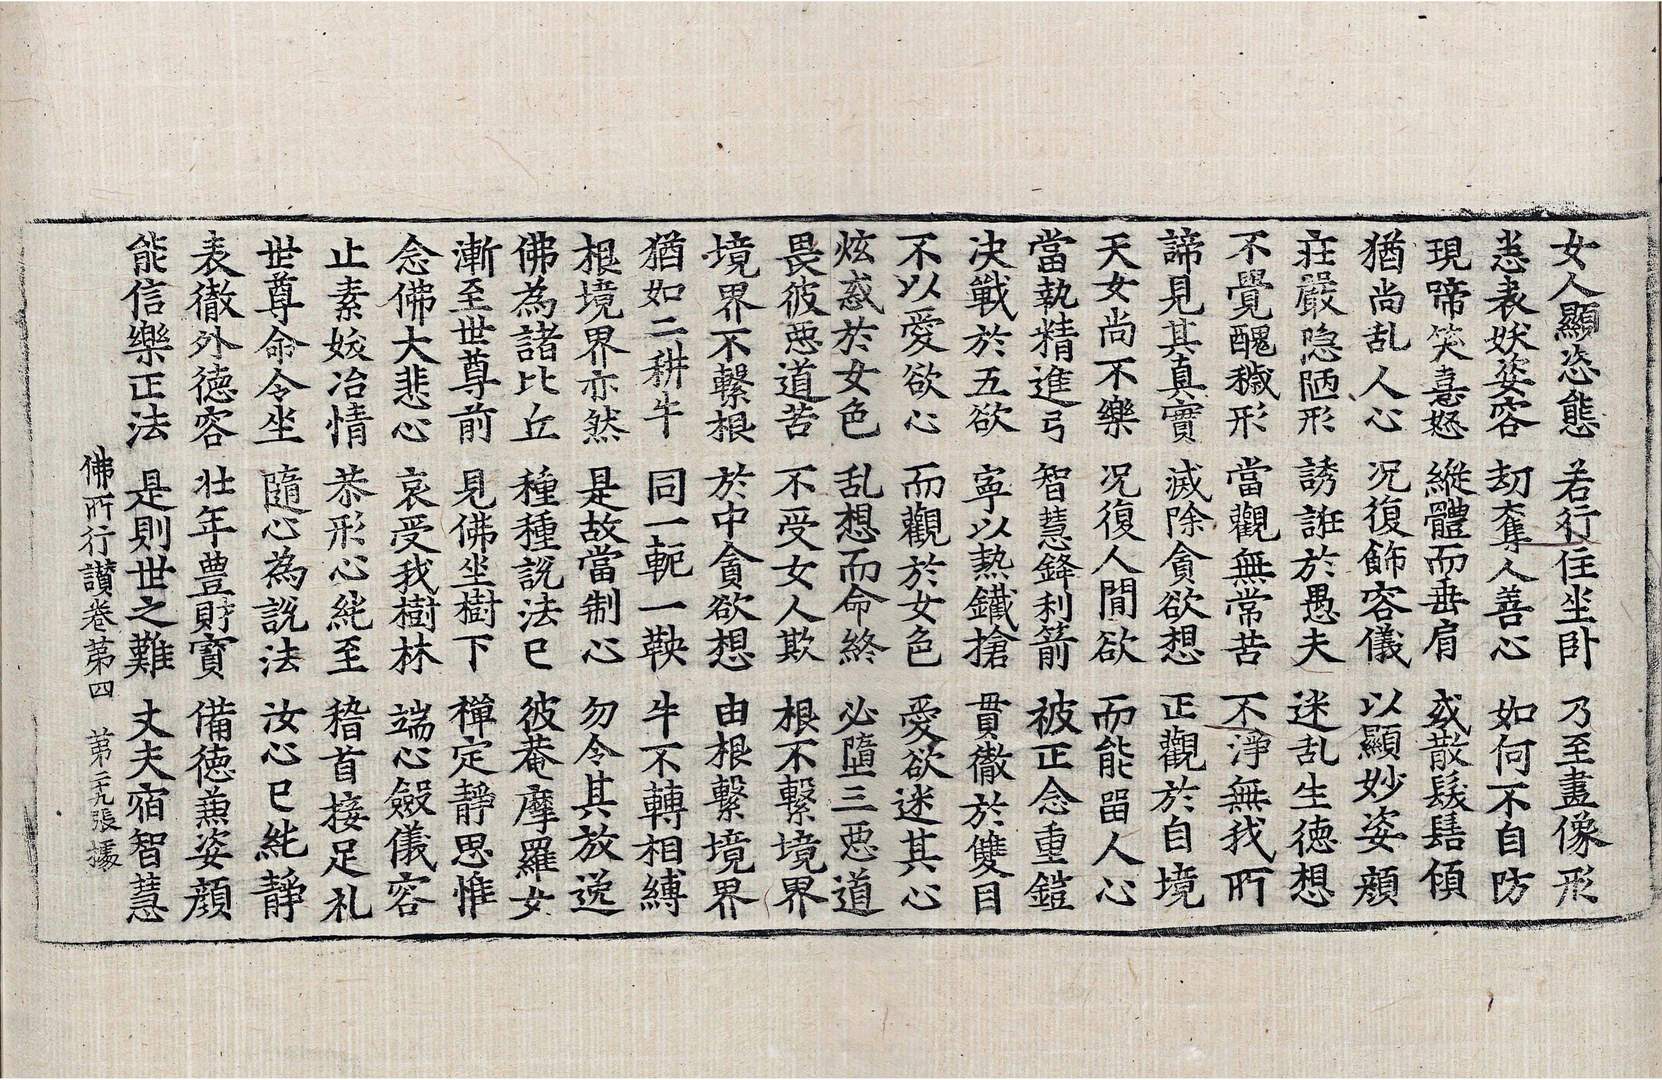 女人顯恣態 若行住坐卧 乃至畫像形
悉表妖姿容 刧奪人善心 如何不自防
現啼笑憙怒 縱體而垂肩 或散髮髻傾
猶尚乱人心 况復飾容儀 以顯妙姿顔
莊嚴隐陋形 誘誑於愚夫 迷乱生德想
不覺醜穢形 當觀無常苦 不淨無我所
諦見其真實 滅除貪欲想 正觀於自境
天女尚不樂 况復人間欲 而能留人心
當執精進弓 智慧鋒利箭 被正念重鎧
决戰於五欲 寧以熱鐵搶 貫徹於雙目
不以愛欲心 而觀於女色 愛欲迷其心
炫惑於女色 乱想而命終 必墮三惡道
畏彼惡道苦 不受女人欺 根不繫境界
境界不繫根 於中貪欲想 由根繫境界
猶如二耕牛 同一軛一鞅 牛不轉相縛
根境界亦然 是故當制心 勿令其放逸
佛為諸比丘 種種說法已 彼菴摩羅女
漸至世尊前 見佛坐樹下 禪定靜思惟
念佛大悲心 哀受我樹林 端心斂儀容
止素妖冶情 恭形心純至 稽首接足礼
世尊命令坐 隨心為說法 汝心已純靜
表徹外德容 壯年豊財寶 備德兼姿顔
能信樂正法 是則世之難 丈夫宿智慧
佛所行讃卷第四 第二九張 據